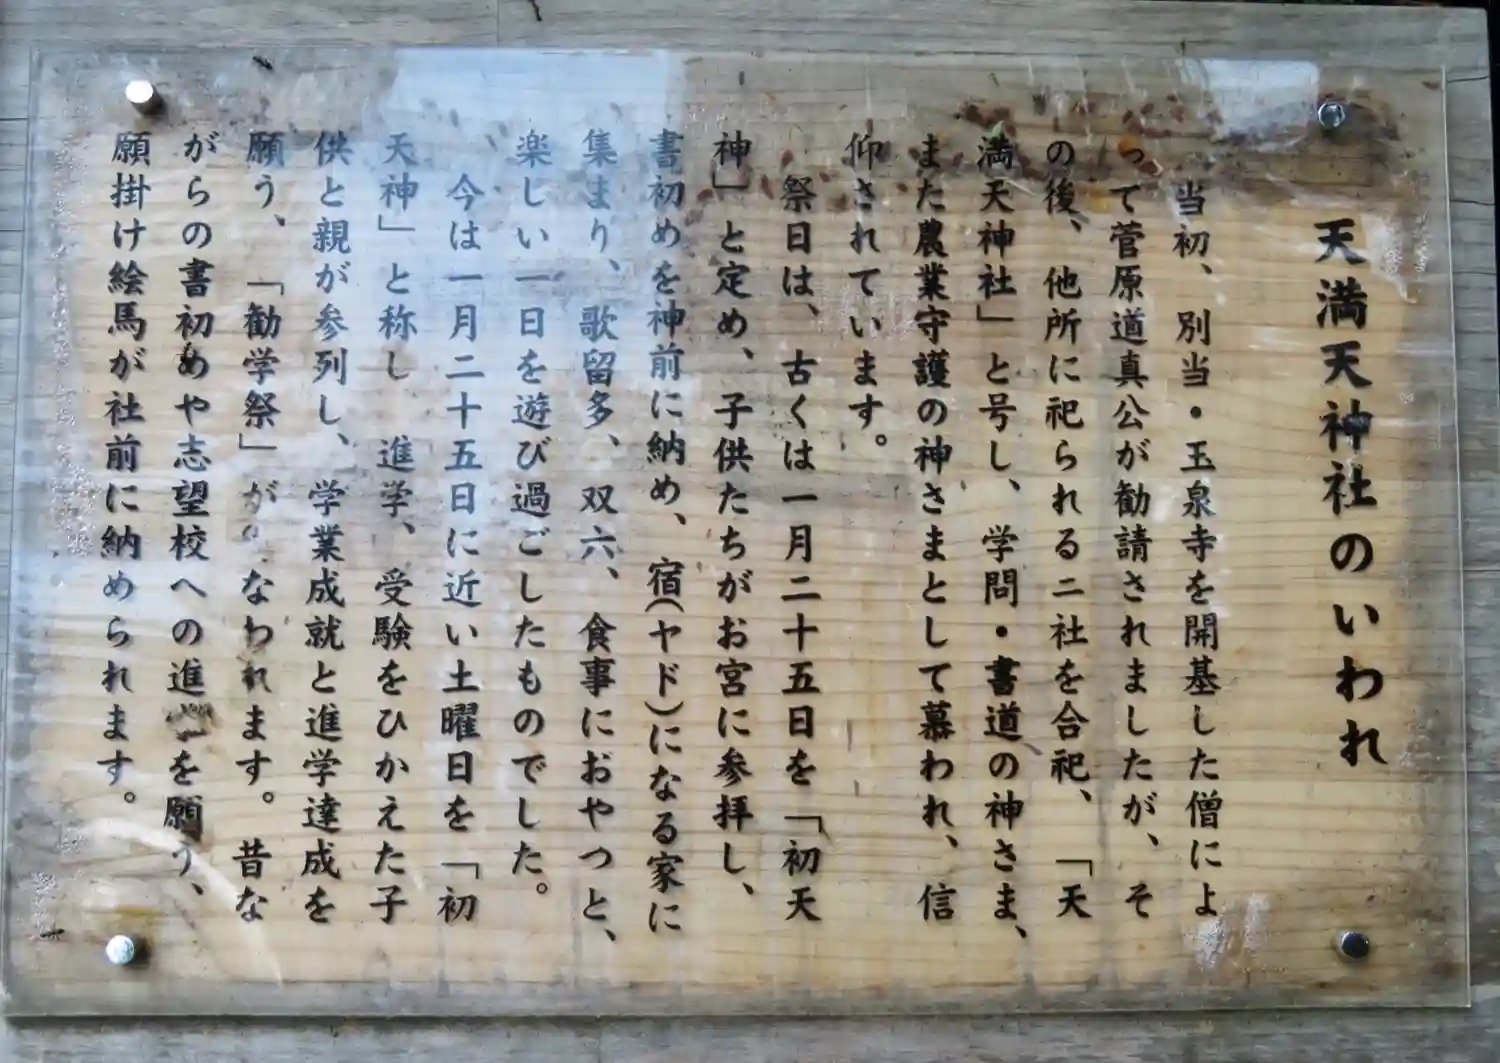 天満天神社のいわれ
当初、別当・玉泉寺を開基した僧によ
って菅原道真公が勧請されましたが、そ
の後、他所に祀られる二社を合祀、「天
満天神社」と号し、学問・書道の神さま、
また農業守護の神さまとして慕われ、信
仰されています。
祭日は、古くは一月二十五日を「初天
神」と定め、子供たちがお宮に参拝し、
書初めを神前に納め、宿(ヤド)になる家に
集まり、歌留多、双六、食事におやつと、
楽しい一日を遊び過ごしたものでした。
今は一月二十五日に近い土曜日を「初
天神」と称し、進学、受験をひかえた子
供と親が参列し、学業成就と進学達成を
願う、「勧学祭」がなわれます。昔な
がらの書初めや志望校への進を願う、
願掛け絵馬が社前に納められます。